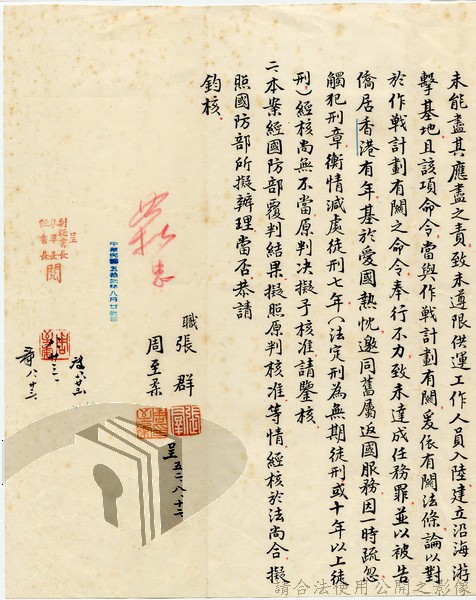 未能盡其應盡之責致未遵限供運工作人員入陸建立沿海游
擊基地且該項命令當與作戰計劃有關爰依有關法條論以對
於作戰計劃有關之命令奉行不力致未達成任務罪並以被告
僑居香港有年基於愛國熱忱邀同舊屬返國服務因一時疏忽
觸犯刑章衡情減處徒刑七年(法定刑為無期徒刑或十年以上徒
刑)經核尚無不當原判決擬予核准請鑒核
二本案經國防部覆判結果擬照原判核准等情經核於法尚合擬
照國防部所擬辦理當否恭請
鈞核
職張群
周至柔
呈五二、八、十二
呈
副秘書長
秘書長
閱
請合法使用公開之影像